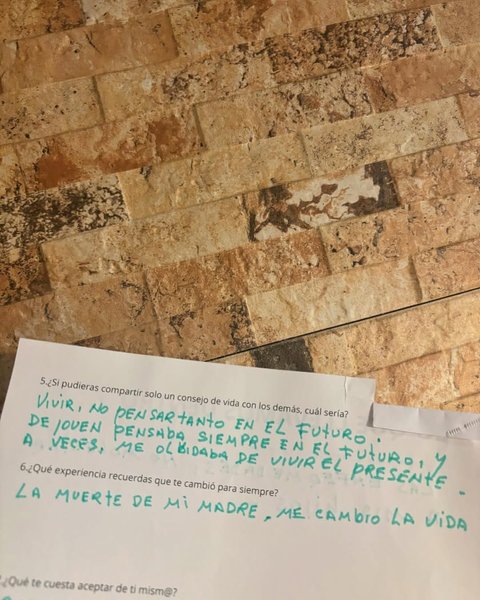 5.¿Si pudieras compartir solo un consejo de vida con los demás, cuál sería?
VIVIR, NO PENSAR TANTO EN EL FUTURO.
DE JOVEN PENSABA SIEMPRE EN EL FUTURO, Y
A VECES, ME OLBIDABA DE VIVIR EL PRESENTE.
6.¿Qué experiencia recuerdas que te cambió para siempre?
LA MUERTE DE MI MADRE, ME CAMBIO LA VIDA
¿Qué te cuesta aceptar de ti mism@?